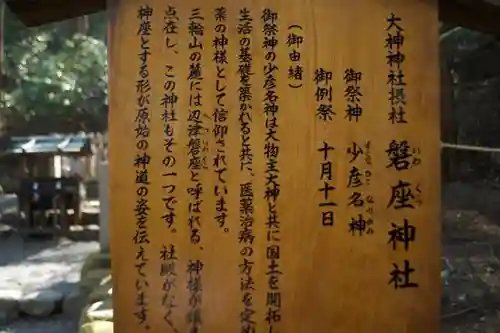 大神神社摂社 磐座神社
いわ くら
御祭神 少彦名神
すくな ひこ なの かみ
御例祭 十月十一日
（御由緒）
御祭神の少彦名神は大物主大神と共に国土を開拓し
生活の基礎を築かれると共に、医薬治病の方法を定め
薬の神様として信仰されています。
三輪山の麓には辺津磐座と呼ばれる、神様が鎮ま
へついわくら
点在し、この神社もその一つです。社殿がなく、
神座とする形が原始の神道の姿を伝えています。